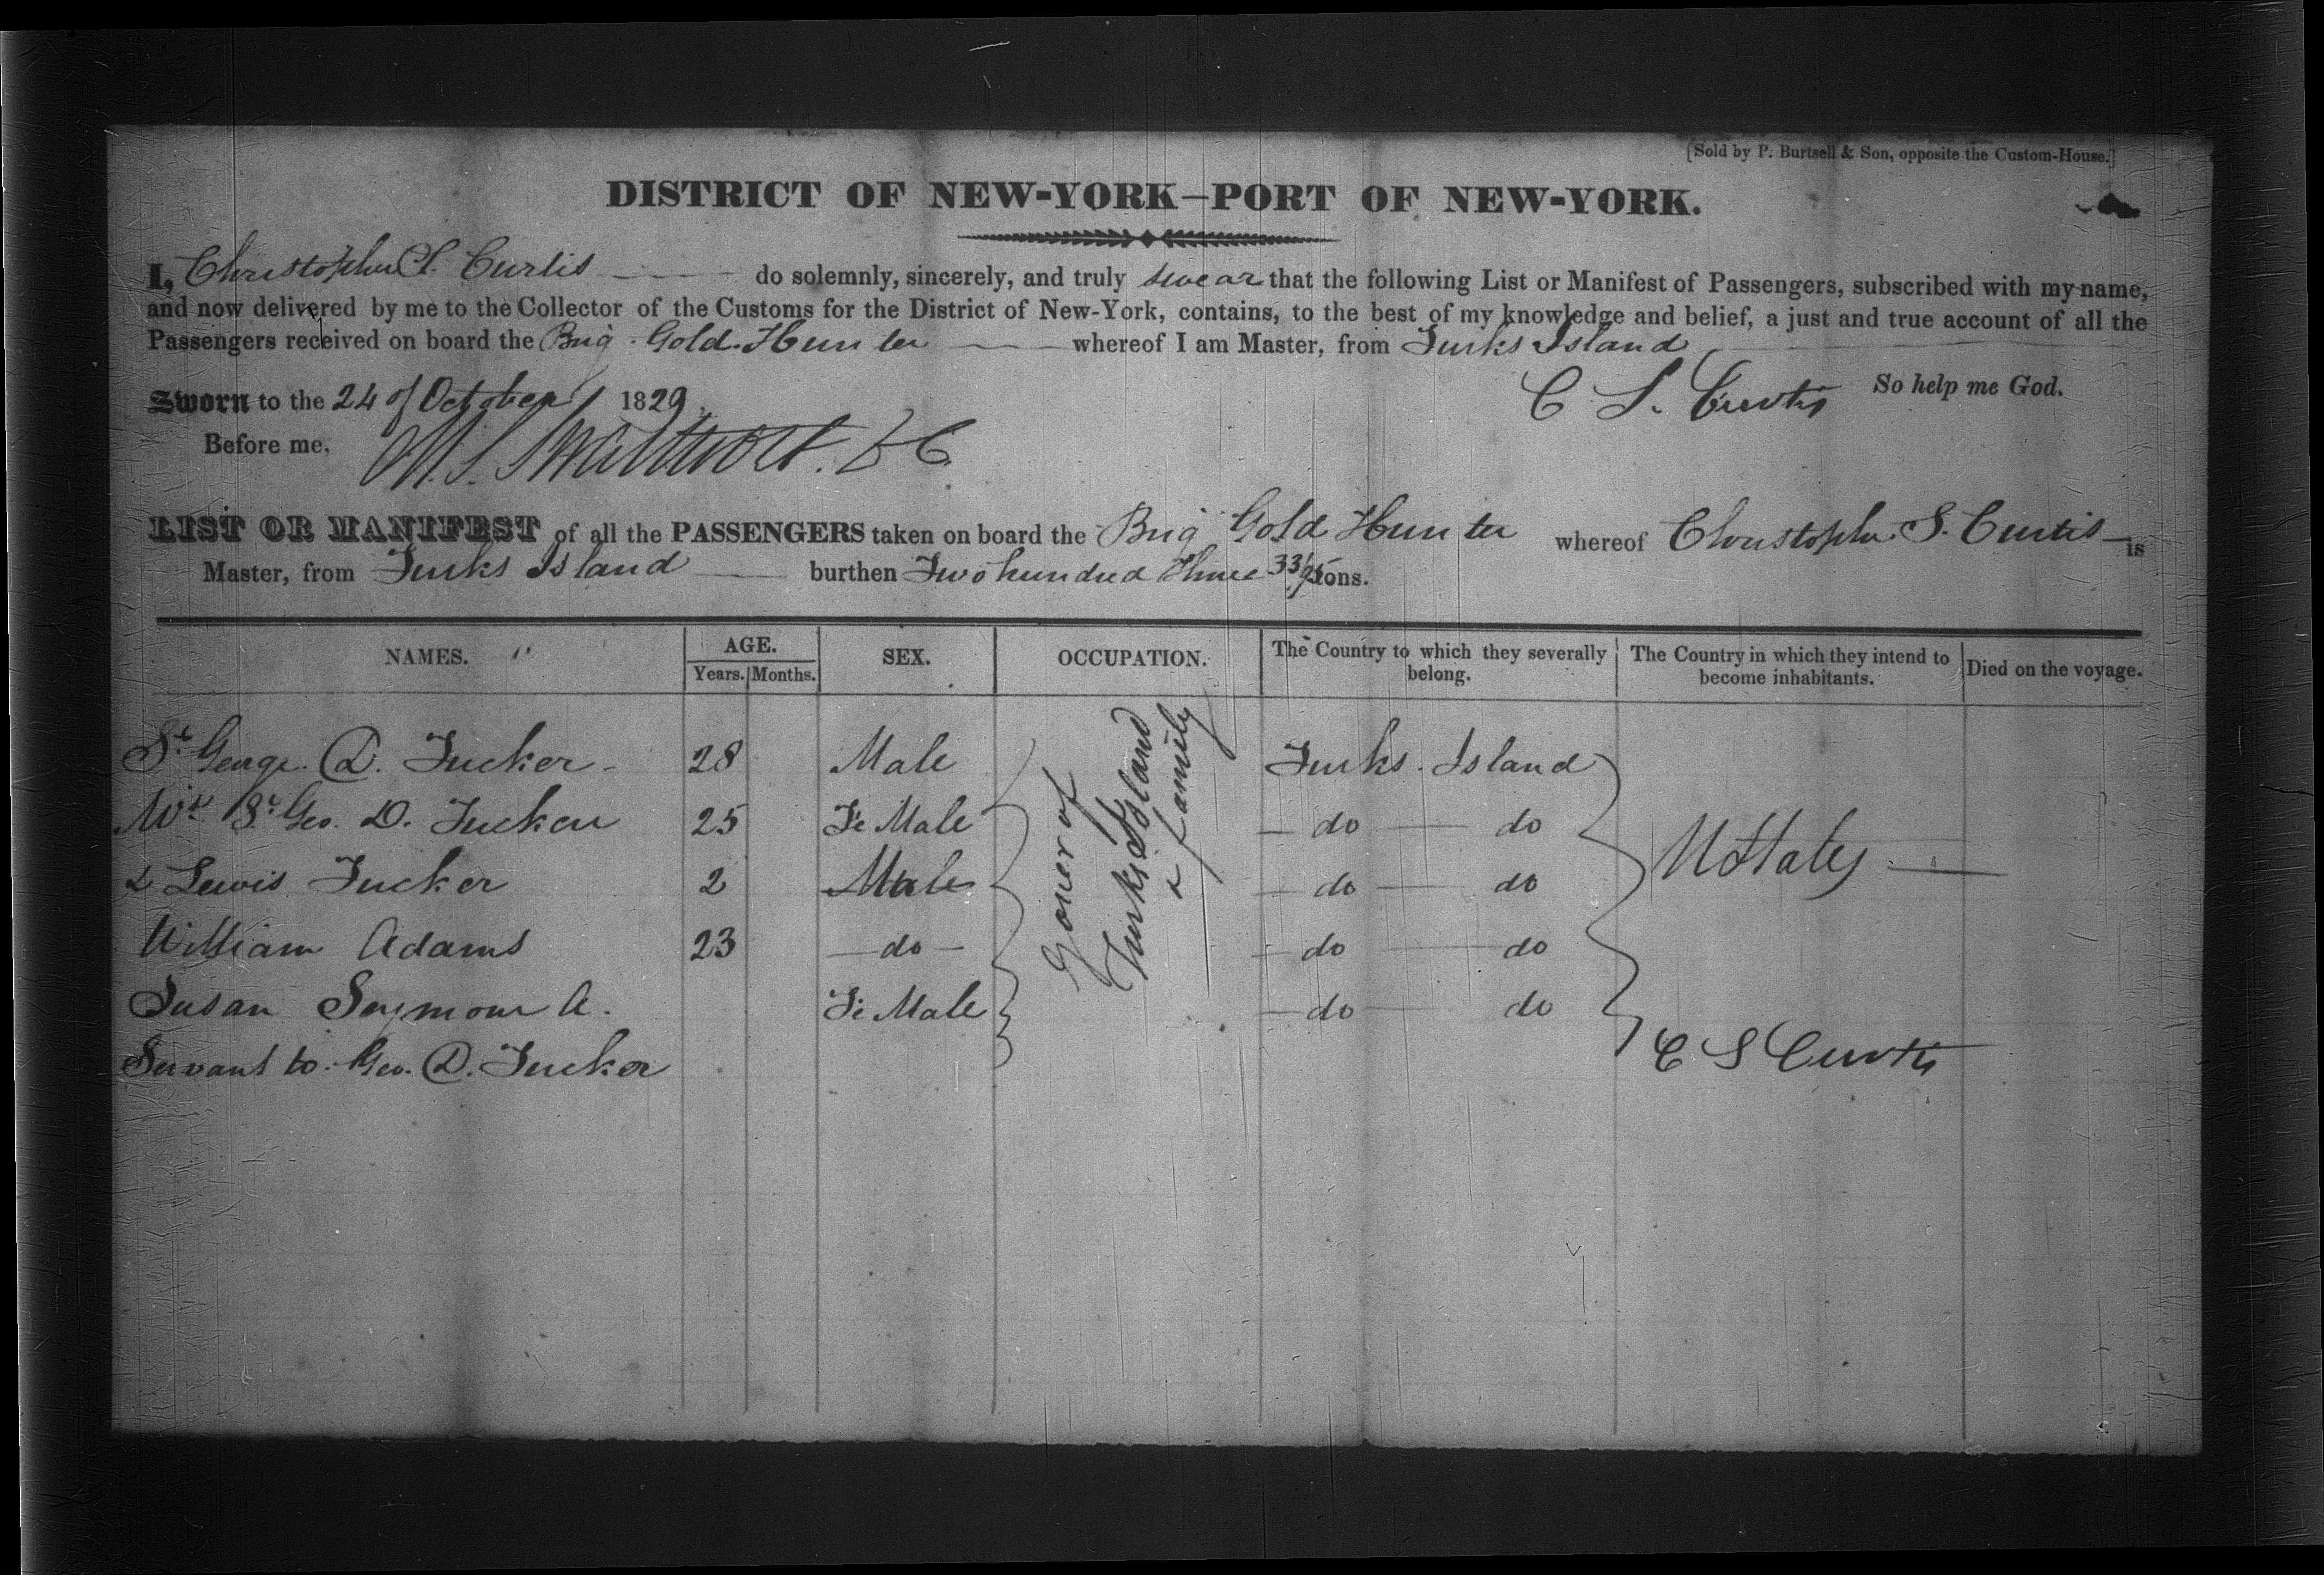 [Sold by P. Burtsell & Son, opposite the Custom-House.]
DISTRICT OF NEW-YORK—PORT OF NEW-YORK.
I, Christopher S. Curtis do solemnly, sincerely, and truly swear that the following List or Manifest of Passengers, subscribed with my name,
and now delivered by me to the Collector of the Customs for the District of New-York, contains, to the best of my knowledge and belief, a just and true account of all the
Passengers received on board the Brig Gold Hunter whereof I am Master, from Turks Island
So help me God.
Sworn to the 24 of October 1829 C S. Curtis
Before me, M. S. Swartwout. D C
LIST OR MANIFEST of all the PASSENGERS taken on board the Brig Gold Hunter whereof Christopher S. Curtis is
Master, from Turks Island burthen Two hundred Three 33/95 tons.
NAMES. AGE. SEX. OCCUPATION. The Country to which they severally belong. The Country in which they intend to become inhabitants. Died on the voyage.
Years. Months.
St George D. Tucker 28 Male Turks Island
Mrs St Geo. D. Tucker 25 Fe Male do do
& Lewis Tucker 2 Male do do
William Adams 23 do do do
Susan Seymour A. Fe Male do do
Servant to Geo. D. Tucker
Turks Island
& family
U States
C S Curtis